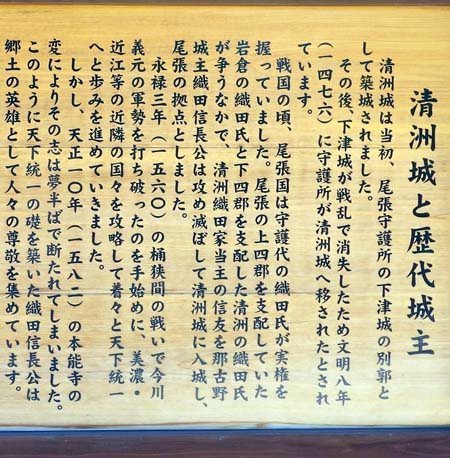 清洲城と歴代城主
清洲城は当初、尾張守護所の下津城の別郭と
して築城されました。
その後、下津城が戦乱で消失したため文明八年
(一四七六)に守護所が清洲城へ移されたとされ
ています。
戦国の頃、尾張国は守護代の織田氏が実権を
握っていました。尾張の上四郡を支配していた
岩倉の織田氏と下四郡を支配した清洲の織田氏
が争うなかで、清洲織田家当主の信友を那古野
城主織田信長公は攻め滅ぼして清洲城に入城し、
尾張の拠点としました。
永禄三年(一五六〇)の桶狭間の戦いで今川
義元の軍勢を打ち破ったのを手始めに、美濃・
近江等の近隣の国々を攻略して着々と天下統一
へと歩みを進めていきました。
しかし、天正一〇年(一五八二)の本能寺の
変によりその志は夢半ばで断たれてしまいました。
このように天下統一の礎を築いた織田信長公は
郷土の英雄として人々の尊敬を集めています。